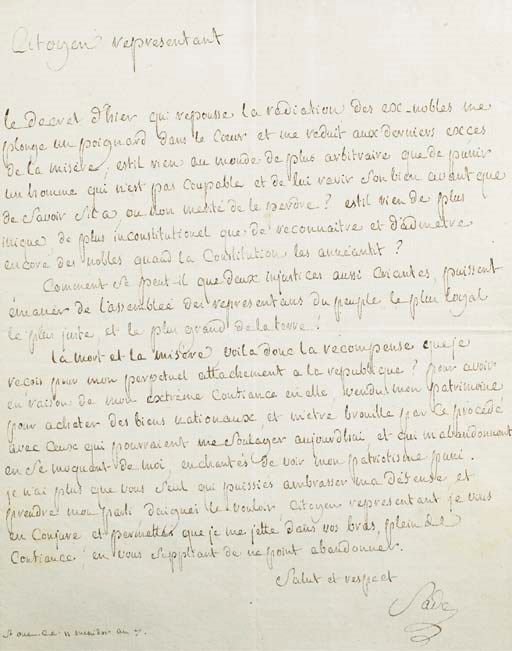 Citoyen representant
le decret d'hier qui repousse la radiation des ex-nobles me
plonge un poignard dans le Cœur et me reduit aux derniers excès
de la misère, estil rien au monde de plus arbitraire que de punir
un homme qui n'est pas Coupable et de lui ravir son bien avant que
de savoir s'il a ou non merité de le perdre? estil rien de plus
inique, de plus inconstitutionel que de reconnaitre et d'admetre
encore des nobles quand la Constitution les anneantit?
Comment se peut-il que deux injustices aussi Criantes, puissent
émaner de l'assemblée des representans du peuple le plus loyal
le plus juste, et le plus grand de la terre!
la mort et la misère, voila donc la recompense que je
reçois pour mon perpetuel attachement a la republique? pour avoir
en raison de mon extrème Confiance en elle, vendu mon patrimoine
pour acheter des biens nationaux, et m'etre brouillé par ce procédé
avec Ceux qui pourraient me soulager aujourdhui, et qui m'abandonnent
en se moquant de moi, enchantés de voir mon patriotisme puni.
je n'ai plus que vous seul qui puissiés embrasser ma défense et
prendre mon parti daignéi le vouloir Citoyen representant je vous
en Conjure et permettés que je me jette dans vos bras, plein de
Confiance, en vous suppliant de ne point abandonner.
Salut et respect
Sade
St ouen ce 11 an 7.